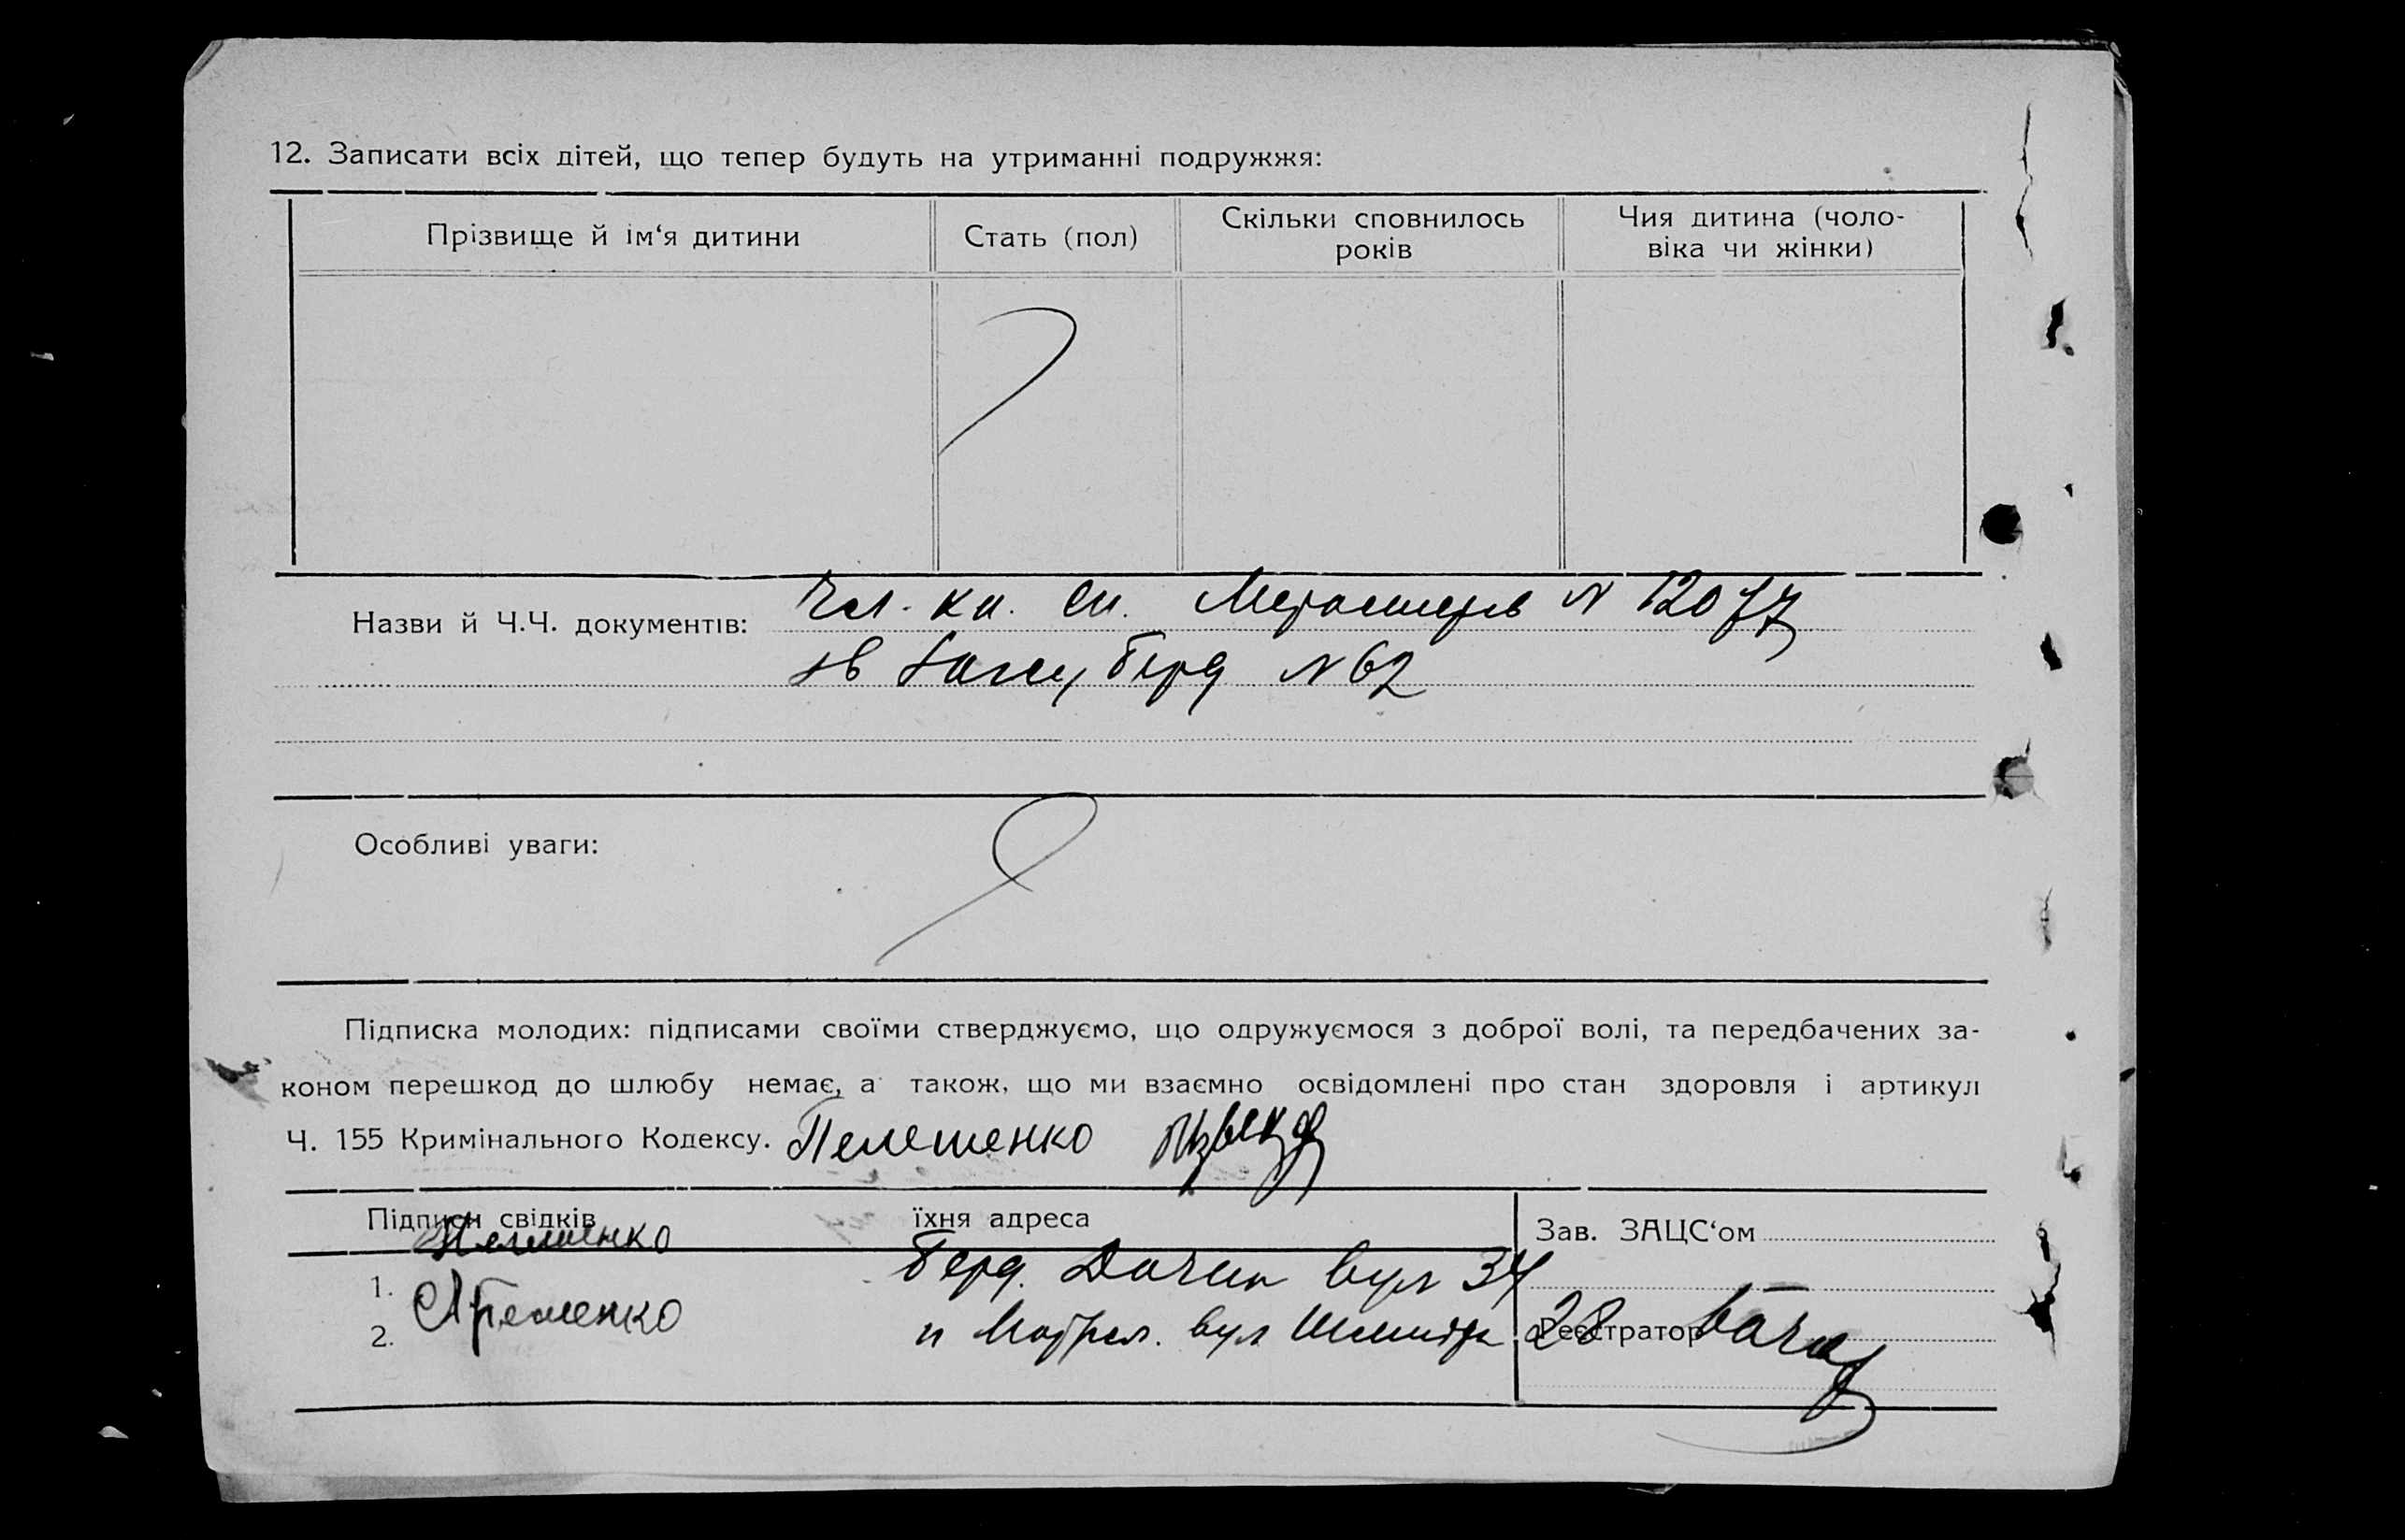 12. Записати всіх дітей, що тепер будуть на утриманні подружжя:
Прізвище й ім‘я дитини
Стать (пол)
Скільки сповнилось
років
Чия дитина (чоло-
віка чи жінки)
Назви й Ч.Ч. документів: Чл. кн. сп. N 12077
N 62
Особливі уваги:
Підписка молодих: підписами своїми стверджуємо, що одружуємося з доброї волі, та передбачених за-
коном перешкод до шлюбу немає, а також, що ми взаємно освідомлені про стан здоровля і артикул
Ч. 155 Кримінального Кодексу. Пелешенко
Підписи свідків
їхня адреса
Зав. ЗАЦС‘ом
Пелешенко
1.
Берд. вул 34
2.
вул 28
Реєстратор